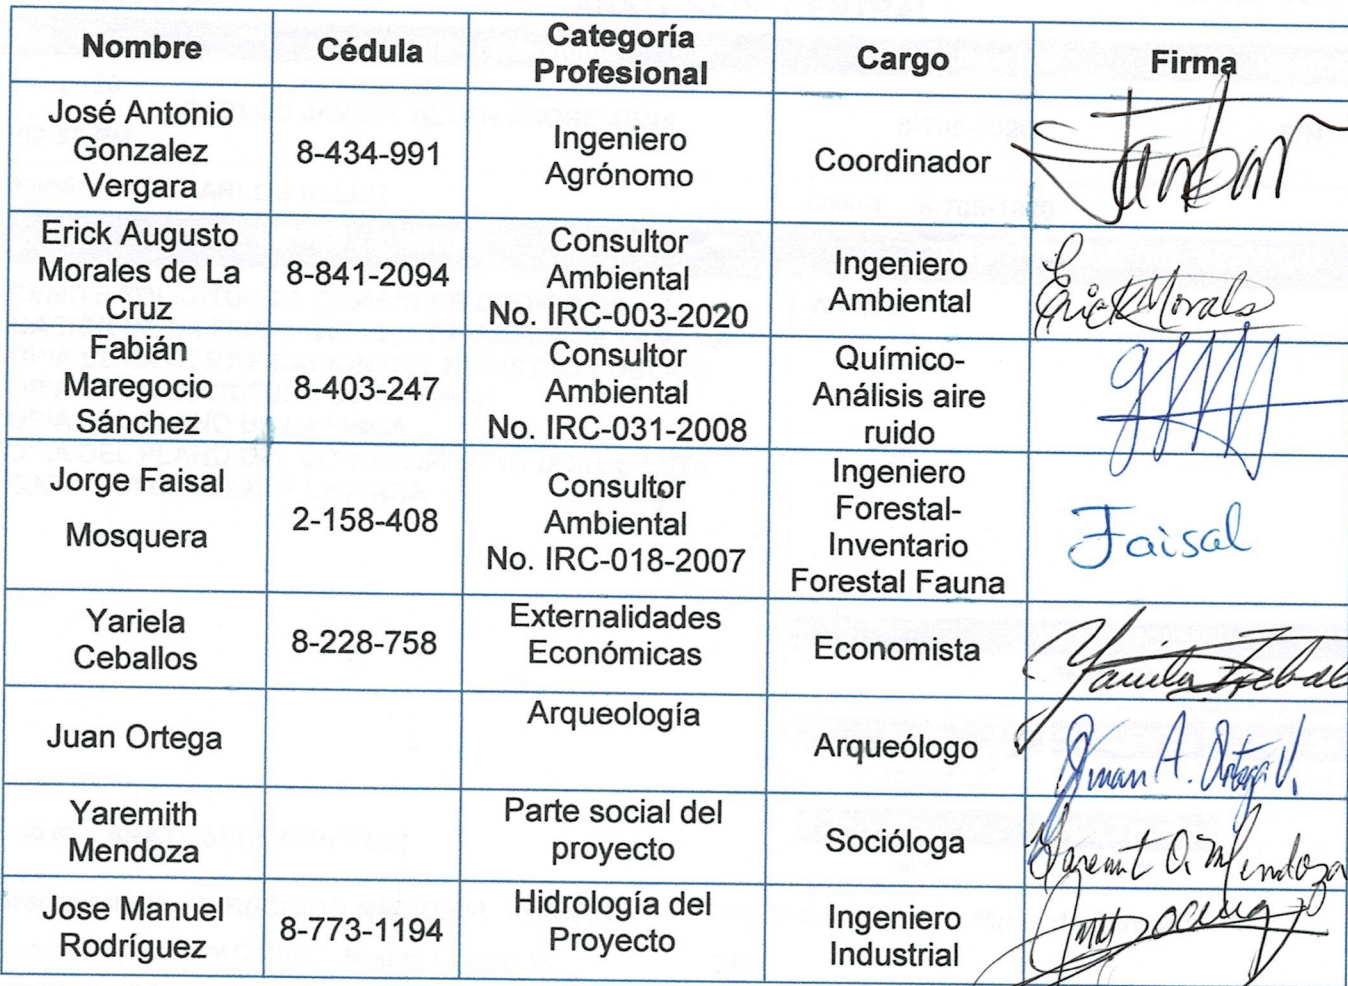 Nombre
Cédula
Categoría
Profesional
Cargo
Firma
José Antonio
Gonzalez
Vergara
8-434-991
Ingeniero
Agrónomo
Coordinador
Erick Augusto
Morales de La
Cruz
8-841-2094
Consultor
Ambiental
No. IRC-003-2020
Ingeniero
Ambiental
Erick Morales
Fabián
Maregocio
Sánchez
8-403-247
Consultor
Ambiental
No. IRC-031-2008
Químico-
Análisis aire
ruido
Jorge Faisal
Mosquera
2-158-408
Consultor
Ambiental
No. IRC-018-2007
Ingeniero
Forestal-
Inventario
Forestal Fauna
Faisal
Yariela
Ceballos
8-228-758
Externalidades
Económicas
Economista
Juan Ortega
Arqueología
Arqueólogo
Juan A. Ortega V.
Yaremith
Mendoza
Parte social del
proyecto
Socióloga
Mendoza
Jose Manuel
Rodríguez
8-773-1194
Hidrología del
Proyecto
Ingeniero
Industrial